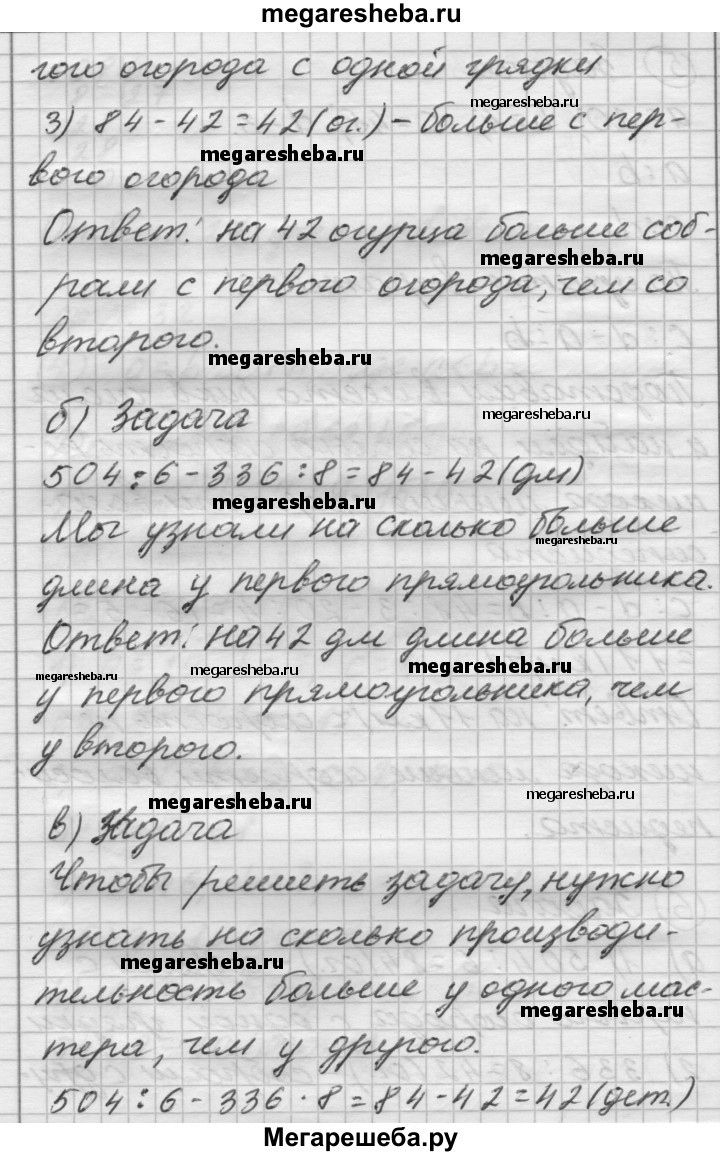 megaresheba.ru
гого огорода с одной грядки
megaresheba.ru
3) 84 - 42 = 42 (ог.) - больше с пер-
megaresheba.ru
вого огорода
Ответ: на 42 огурца больше соб-
megaresheba.ru
рали с первого огорода, чем со
второго.
megaresheba.ru
б) Задача
megaresheba.ru
504 : 6 - 336 : 8 = 84 - 42 (дм)
megaresheba.ru
Мы узнали на сколько больше
megaresheba.ru
длина у первого прямоугольника.
Ответ: на 42 дм длина больше
megaresheba.ru
megaresheba.ru
megaresheba.ru
у первого прямоугольника, чем
у второго.
megaresheba.ru
megaresheba.ru
в) Задача
Чтобы решить задачу, нужно
узнать на сколько производи-
megaresheba.ru
тельность больше у одного мас-
megaresheba.ru
тера, чем у другого.
504 : 6 - 336 · 8 = 84 - 42 = 42 (дет.)
Мегарешеба.ру